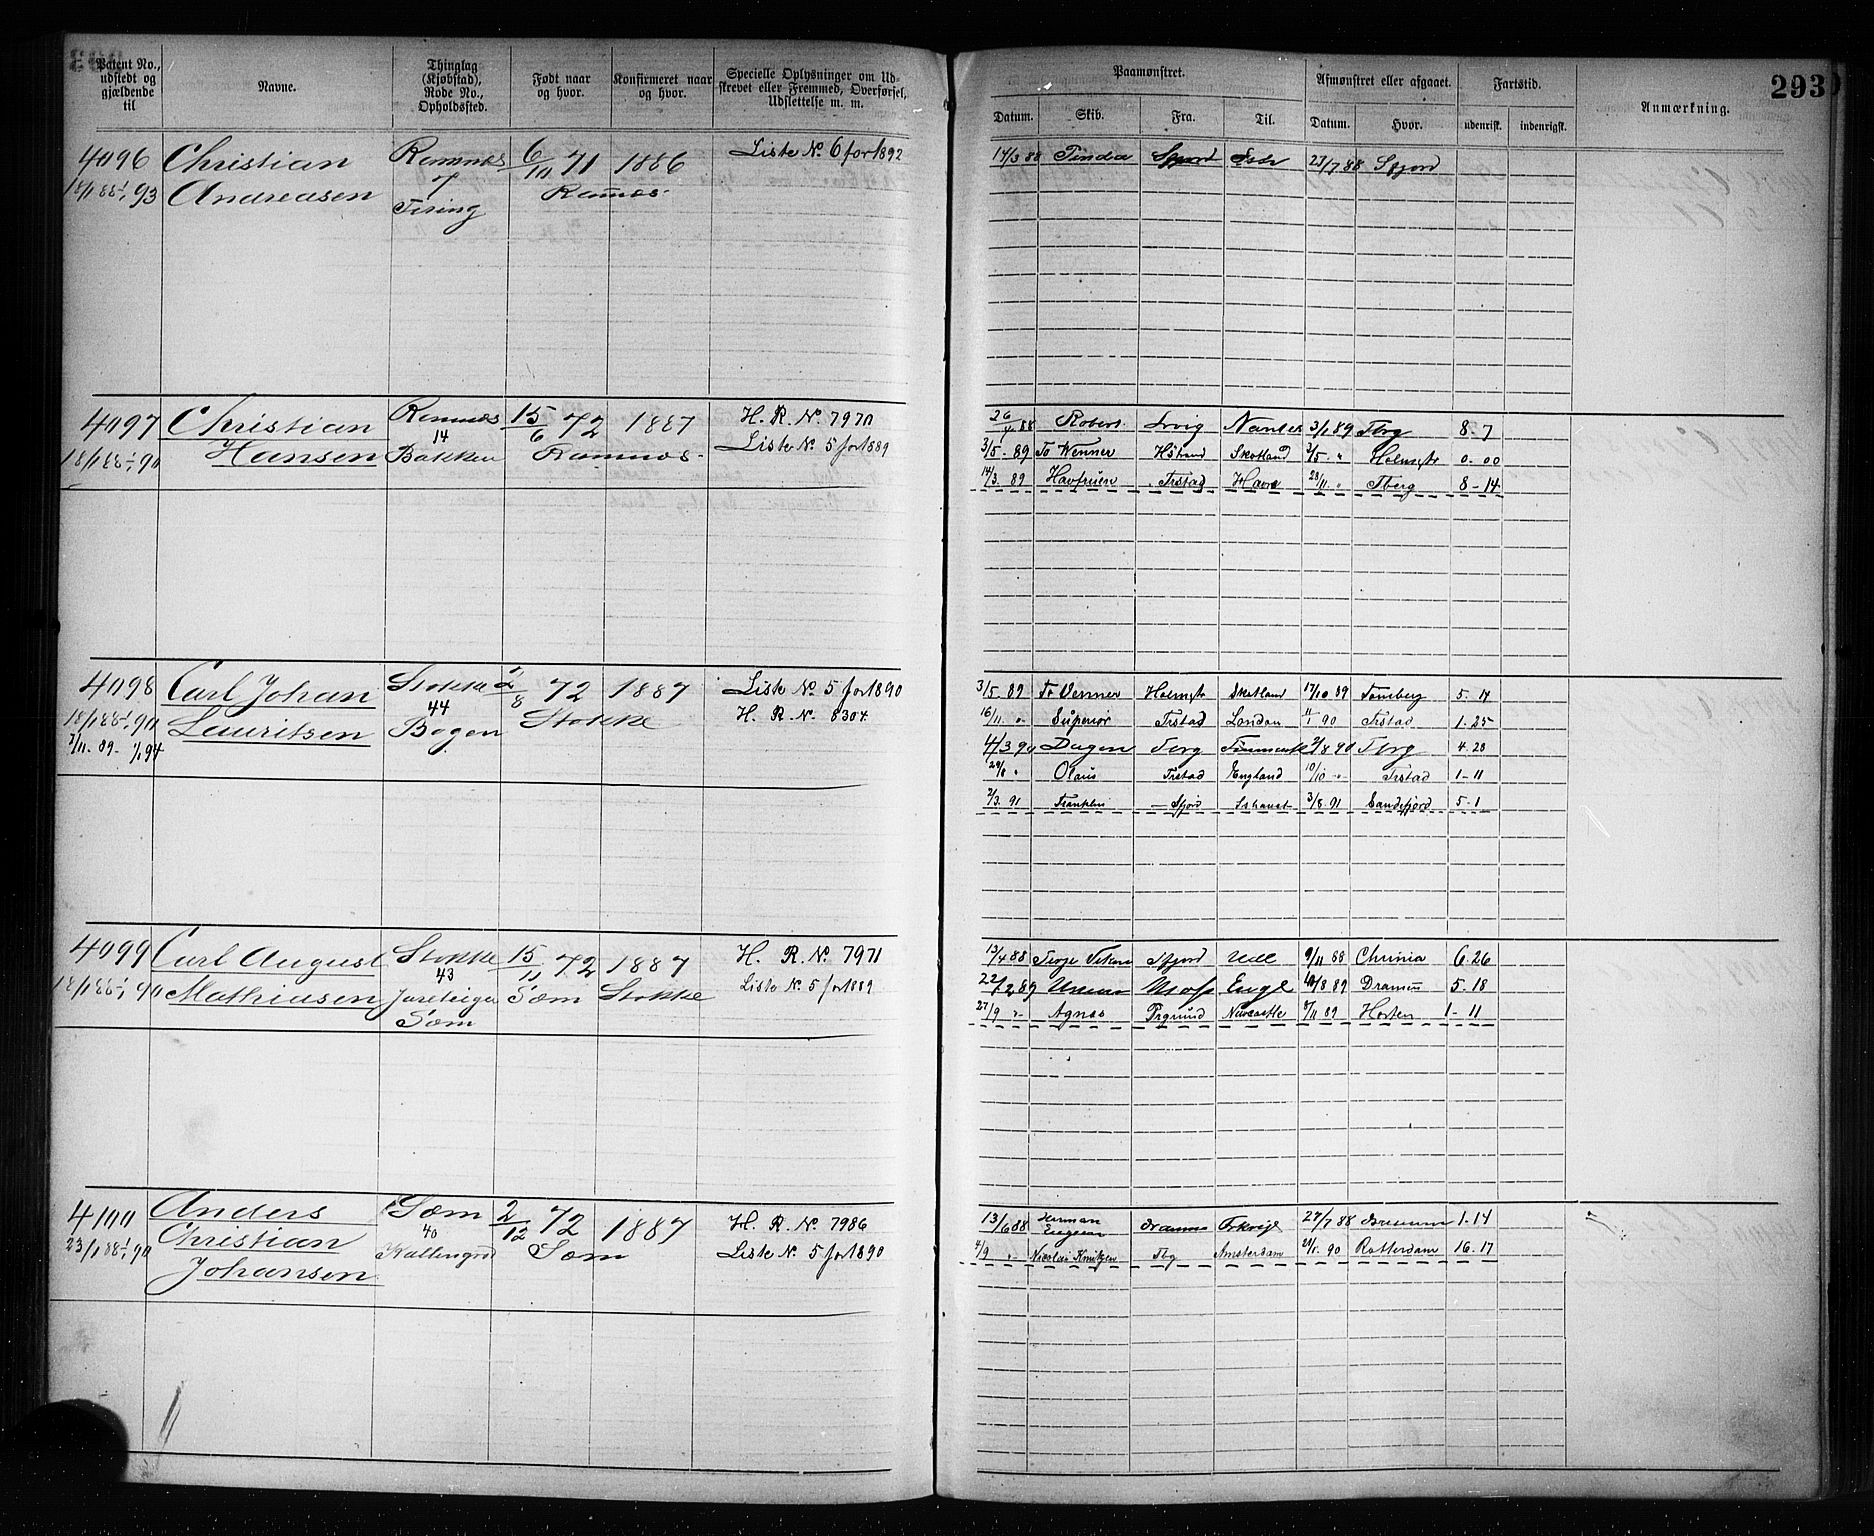 293
Patent No., udstedt og gjældende til | Navne. | Thinglag (Kjøbstad), Rode No., Opholdssted. | Født naar og hvor. | Konfirmeret naar og hvor. | Specielle Oplysninger om Udskrevet eller Fremmed, Overførsel, Udslettelse m. m. | Paamønstret. | Afmønstret eller afgaaet. | Fartstid. | Anmærkning.
Datum. | Skib. | Fra. | Til. | Datum. | Hvor. | udenrigst. | indenrigst.
4096 Christian Ramnæs 6/10 71 1886 Liste No. 6 for 1892
18/1 88 - 1/1 93 Andreasen 7 Ramnæs
14/3 88 23/7 88 Sfjord
4097 Christian Ramnæs 15/6 72 1887 H. R. No. 7970
18/1 88 - 1/1 90 Hansen 14 Bakken Ramnæs Liste No. 5 for 1889
26/4 88 Robert Lrvig 3/1 89 Tbrg 8-7
3/5 - 89 To Venner Hstrand Skotland 3/5 " Holmstr 0-00
14/3. 89 Havfruen Trstad Havre 28/11 " Tberg 8-14
4098 Carl Johan Stokke 2/8 72 1887 Liste No. 5 for 1890
18/1 88 - 1/1 90 Lauritsen 44 Bogen Stokke H. R. No. 8304
7/11. 89 - 1/1 94
3/5. 89 To Venner Holmstr Skotland 17/10 89 Tønsberg 5-14
16/11 " Superiør Trstad London 11/1 90 Trstad 1-25
4/3 90 Dagen Tbrg Finmark 2/8 90 Tbrg 4-28
29/8 " Olaus Trstad England 10/10 " Trstad 1-11
2/3. 91 Franklin Sfjord Ishavet 3/8. 91 Sandefjord 5-1
4099 Carl August Stokke 15/11 72 1887 H. R. No. 7971
18/1 88 - 1/1 90 Mathiasen 43 Sæm Stokke Liste No. 5 for 1889
Sæm
13/4 88 Sfjord 9/11 88 Chrinia 6-26
22/2 89 Moss Engl 10/8 89 Dramen 5-18
27/9 " Agnes Prgrund Newcastle 8/11 89 Horten 1-11
4100 Anders Sæm 2/12 72 1887 H. R. No. 7986
23/1 88 - 1/1 90 Christian 40 Sæm Liste No. 5 for 1890
Johansen
13/6 88 Herman 27/7 88 1-14
4/9 " Nicolai Knutzen Tbg Amsterdam 21/1. 90 Rotterdam 16-17